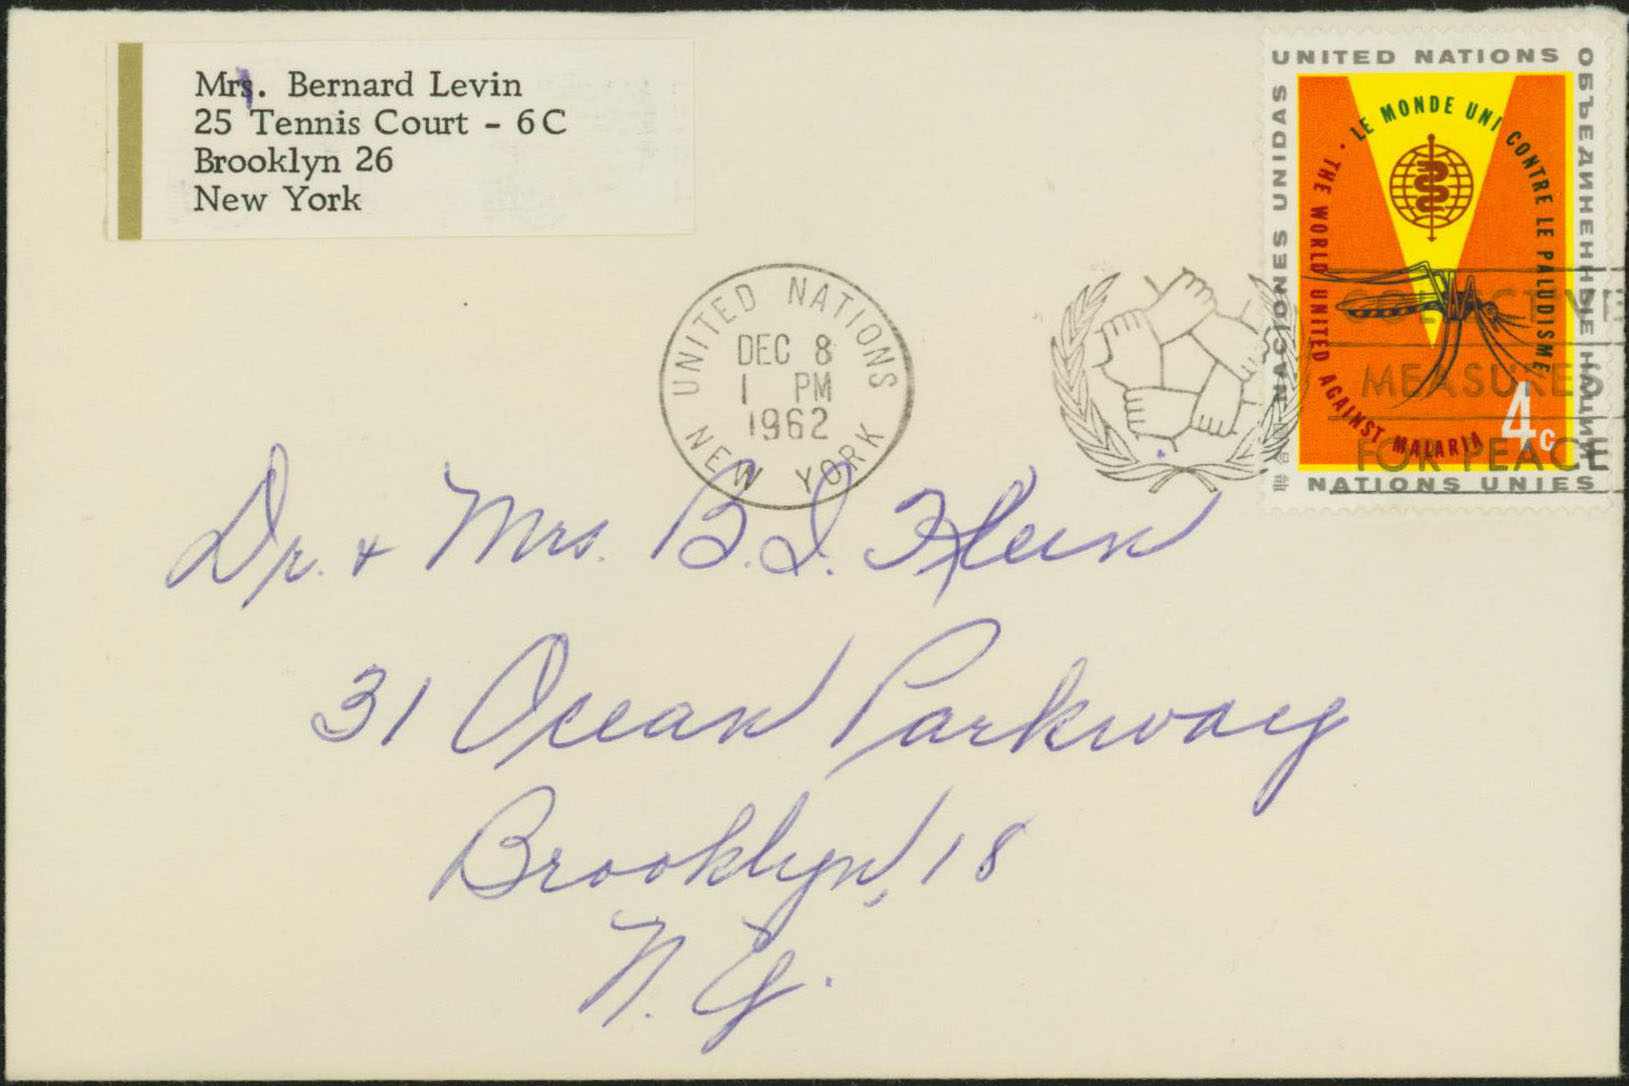 Mrs. Bernard Levin
25 Tennis Court - 6C
Brooklyn 26
New York
UNITED NATIONS
NEW YORK
DEC 8
1 PM
1962
UNITED NATIONS
NACIONES UNIDAS
ОБЪЕДИНЕННЫЕ НАЦИИ
NATIONS UNIES
LE MONDE UNI CONTRE LE PALUDISME
THE WORLD UNITED AGAINST MALARIA
4c
COLLECTIVE
MEASURES
FOR PEACE
Dr. & Mrs. B. I. Klein
31 Ocean Parkway
Brooklyn, 18
N. Y.